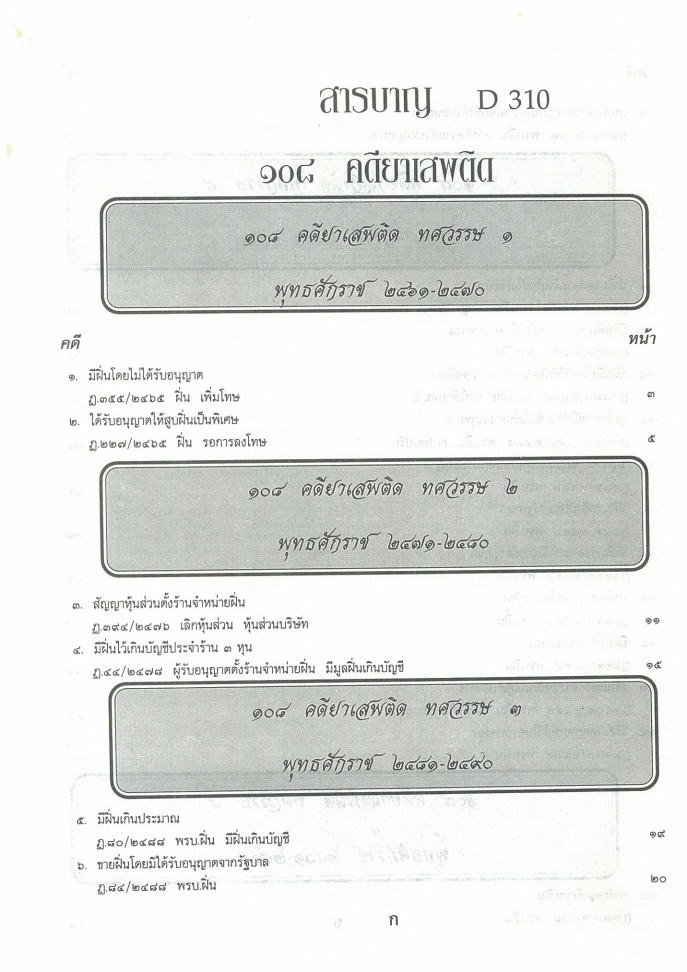 สารบาญ D 310
๑๐๘ คดียาเสพติด
๑๐๘ คดียาเสพติด ทศวรรษ ๑
พุทธศักราช ๒๔๖๑-๒๔๗๐
คดี หน้า
๑. มีฝิ่นโดยไม่ได้รับอนุญาต
ฎ.๓๕๕/๒๔๖๕ ฝิ่น เพิ่มโทษ ๓
๒. ได้รับอนุญาตให้สูบฝิ่นเป็นพิเศษ
ฎ.๒๒๗/๒๔๖๕ ฝิ่น รอการลงโทษ ๕
๑๐๘ คดียาเสพติด ทศวรรษ ๒
พุทธศักราช ๒๔๗๑-๒๔๘๐
๓. สัญญาหุ้นส่วนตั้งร้านจำหน่ายฝิ่น
ฎ.๓๙๔/๒๔๗๖ เลิกหุ้นส่วน หุ้นส่วนบริษัท ๑๑
๔. มีฝิ่นไว้เกินบัญชีประจำร้าน ๓ หุน
ฎ.๔๔/๒๔๗๘ ผู้รับอนุญาตตั้งร้านจำหน่ายฝิ่น มีมูลฝิ่นเกินบัญชี ๑๕
๑๐๘ คดียาเสพติด ทศวรรษ ๓
พุทธศักราช ๒๔๘๑-๒๔๙๐
๕. มีฝิ่นเกินประมาณ
ฎ.๘๐/๒๔๘๘ พรบ.ฝิ่น มีฝิ่นเกินบัญชี ๑๙
๖. ขายฝิ่นโดยมิได้รับอนุญาตจากรัฐบาล
ฎ.๘๔/๒๔๘๘ พรบ.ฝิ่น ๒๐
ก